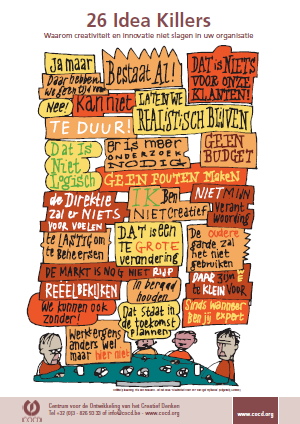 26 Idea Killers
Waarom creativiteit en innovatie niet slagen in uw organisatie
Ja maar
Bestaat Al!
DAT is NIETS
VOOR ONZE
KLANTEN!
Daar hebben
we geen tijd voor
Nee!
Kan niet
LATEN WE
REALISTISCH BLIJVEN
TE DUUR!
Dat Is
Niet
Logisch
er is meer
ONDERZOEK
NODIG
GEEN
BUDGET
GEEN FOUTEN MAKEN
de Direktie
zal er NIETS
VOOR VOELEN
IK Ben
NIET Creatief
NIET MIJN
Verant
woording
te LASTIG om
te Beheersen
DAT is ÉÉN
TE GROTE
verandering
De oudere
garde zal
het niet
gebruiken
DE MARKT IS NOG NIET RIJP
DAAR zijn we
te KLEIN VOOR
REËEL BEKIJKEN
In beraad
houden
We kunnen ook
zonder!
Dat Staat in
de toekomst
plannen
Sinds wanneer
Ben jij expert
Werkt ergens
anders wel
maar hier niet
COCD
Centrum voor de Ontwikkeling van het Creatief Denken
www.cocd.org